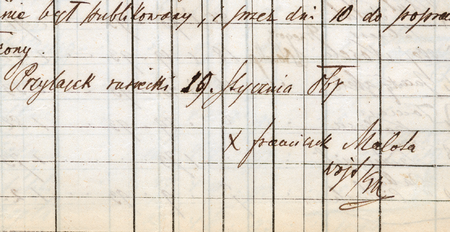 nie był publikowany, i przez dni 10 do popra
żony.
Przylasek rusiecki 19. Stycznia
X franciszek Malota
wójt